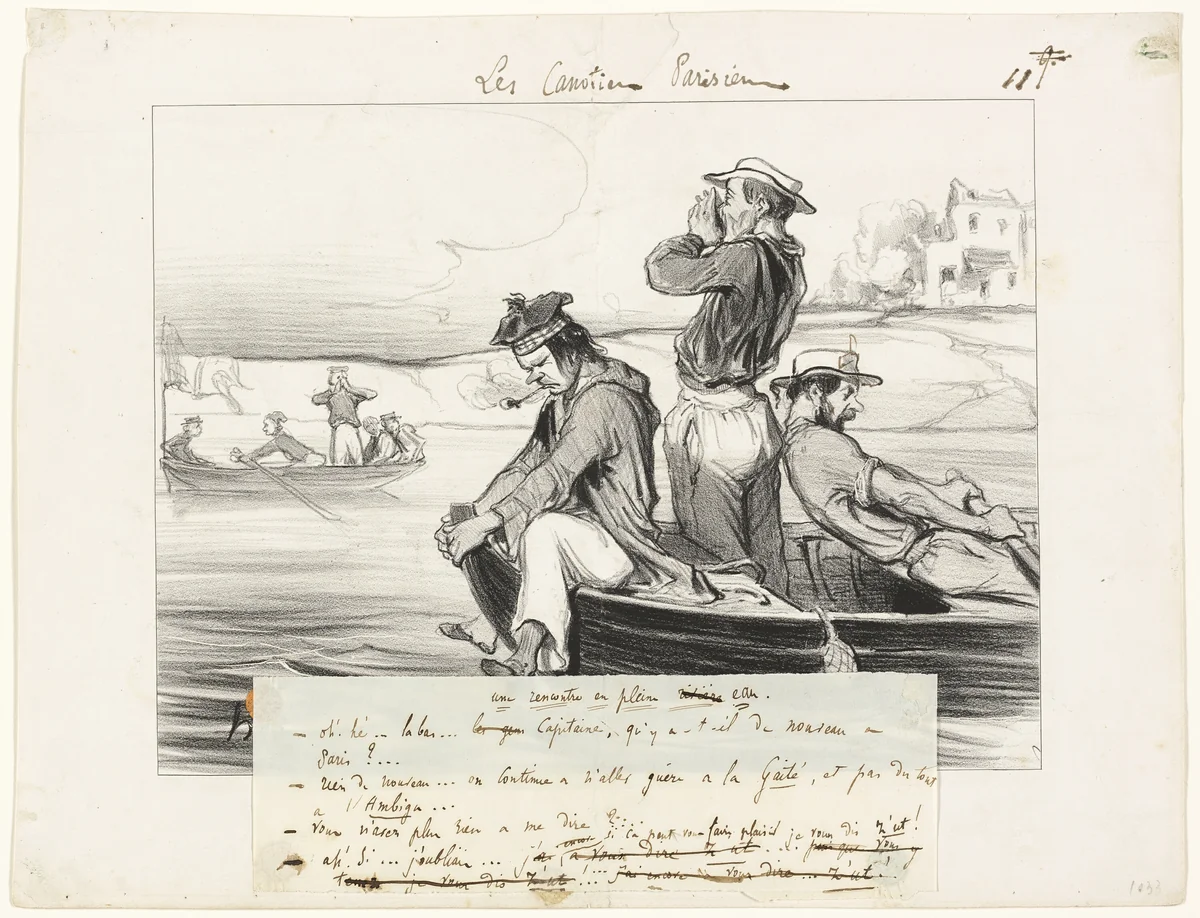 Les Canotiers Parisiens
11 9.
une rencontre en pleine rivière eau.
– oh! hé... la bas... les gens Capitaine, qu'y a-t-il de nouveau a
Paris?....
– rien de nouveau... on continue a n'aller guère a la Gaité, et pas du tout
a l'Ambigu...
– vous n'avez plus rien a me dire?....
– ah! Si... j'oubliais... j'ai encore a vous dire Z'ut... si ça peut vous faire plaisir je vous dis Z'ut! puis que vous y
tenez je vous dis Z'ut!... j'ai encore a vous dire... Z'ut!
1033